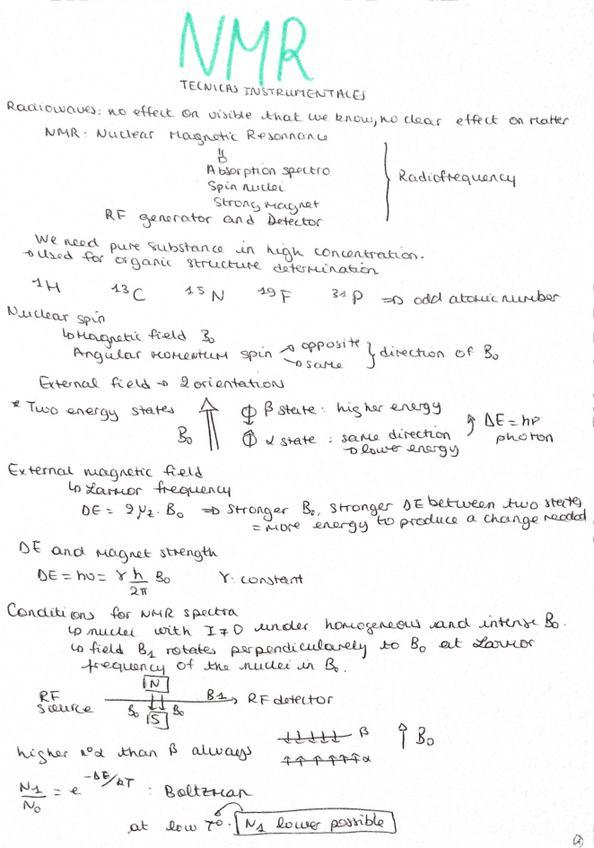 NMR
TECNICAS INSTRUMENTALES
Radiowaves: no effect on visible that we know, no clear effect on matter
NMR: Nuclear Magnetic Resonnance
⇓
Absorption spectro
Spin nuclei
Strong Magnet
RF generator and Detector
} Radiofrequency
We need pure substance in high concentration.
→ Used for organic structure determination
¹H ¹³C ¹⁵N ¹⁹F ³¹P ⇒ odd atomic number
Nuclear spin
↳ Magnetic field B₀
Angular momentum spin → opposite → same } direction of B₀
External field → 2 orientations
* Two energy states B₀
β state: higher energy
α state: same direction
→ lower energy
ΔE = hν
photon
External magnetic field
↳ Larmor frequency
ΔE = 2μz · B₀ ⇒ stronger B₀, stronger ΔE between two states
= more energy to produce a change needed
ΔE and magnet strength
ΔE = hν = γ h/2π B₀ γ: constant
Conditions for NMR spectra
↳ nuclei with I≠0 under homogeneous and intense B₀.
↳ field B₁ rotates perpendicularly to B₀ at Larmor
frequency of the nuclei in B₀.
N
RF source B1 → RF detector
B₀ B₀
S
higher nºα than β always β α B₀
N1/N0 = e^-ΔE/kT : Boltzman
at low Tº. N1 lower possible